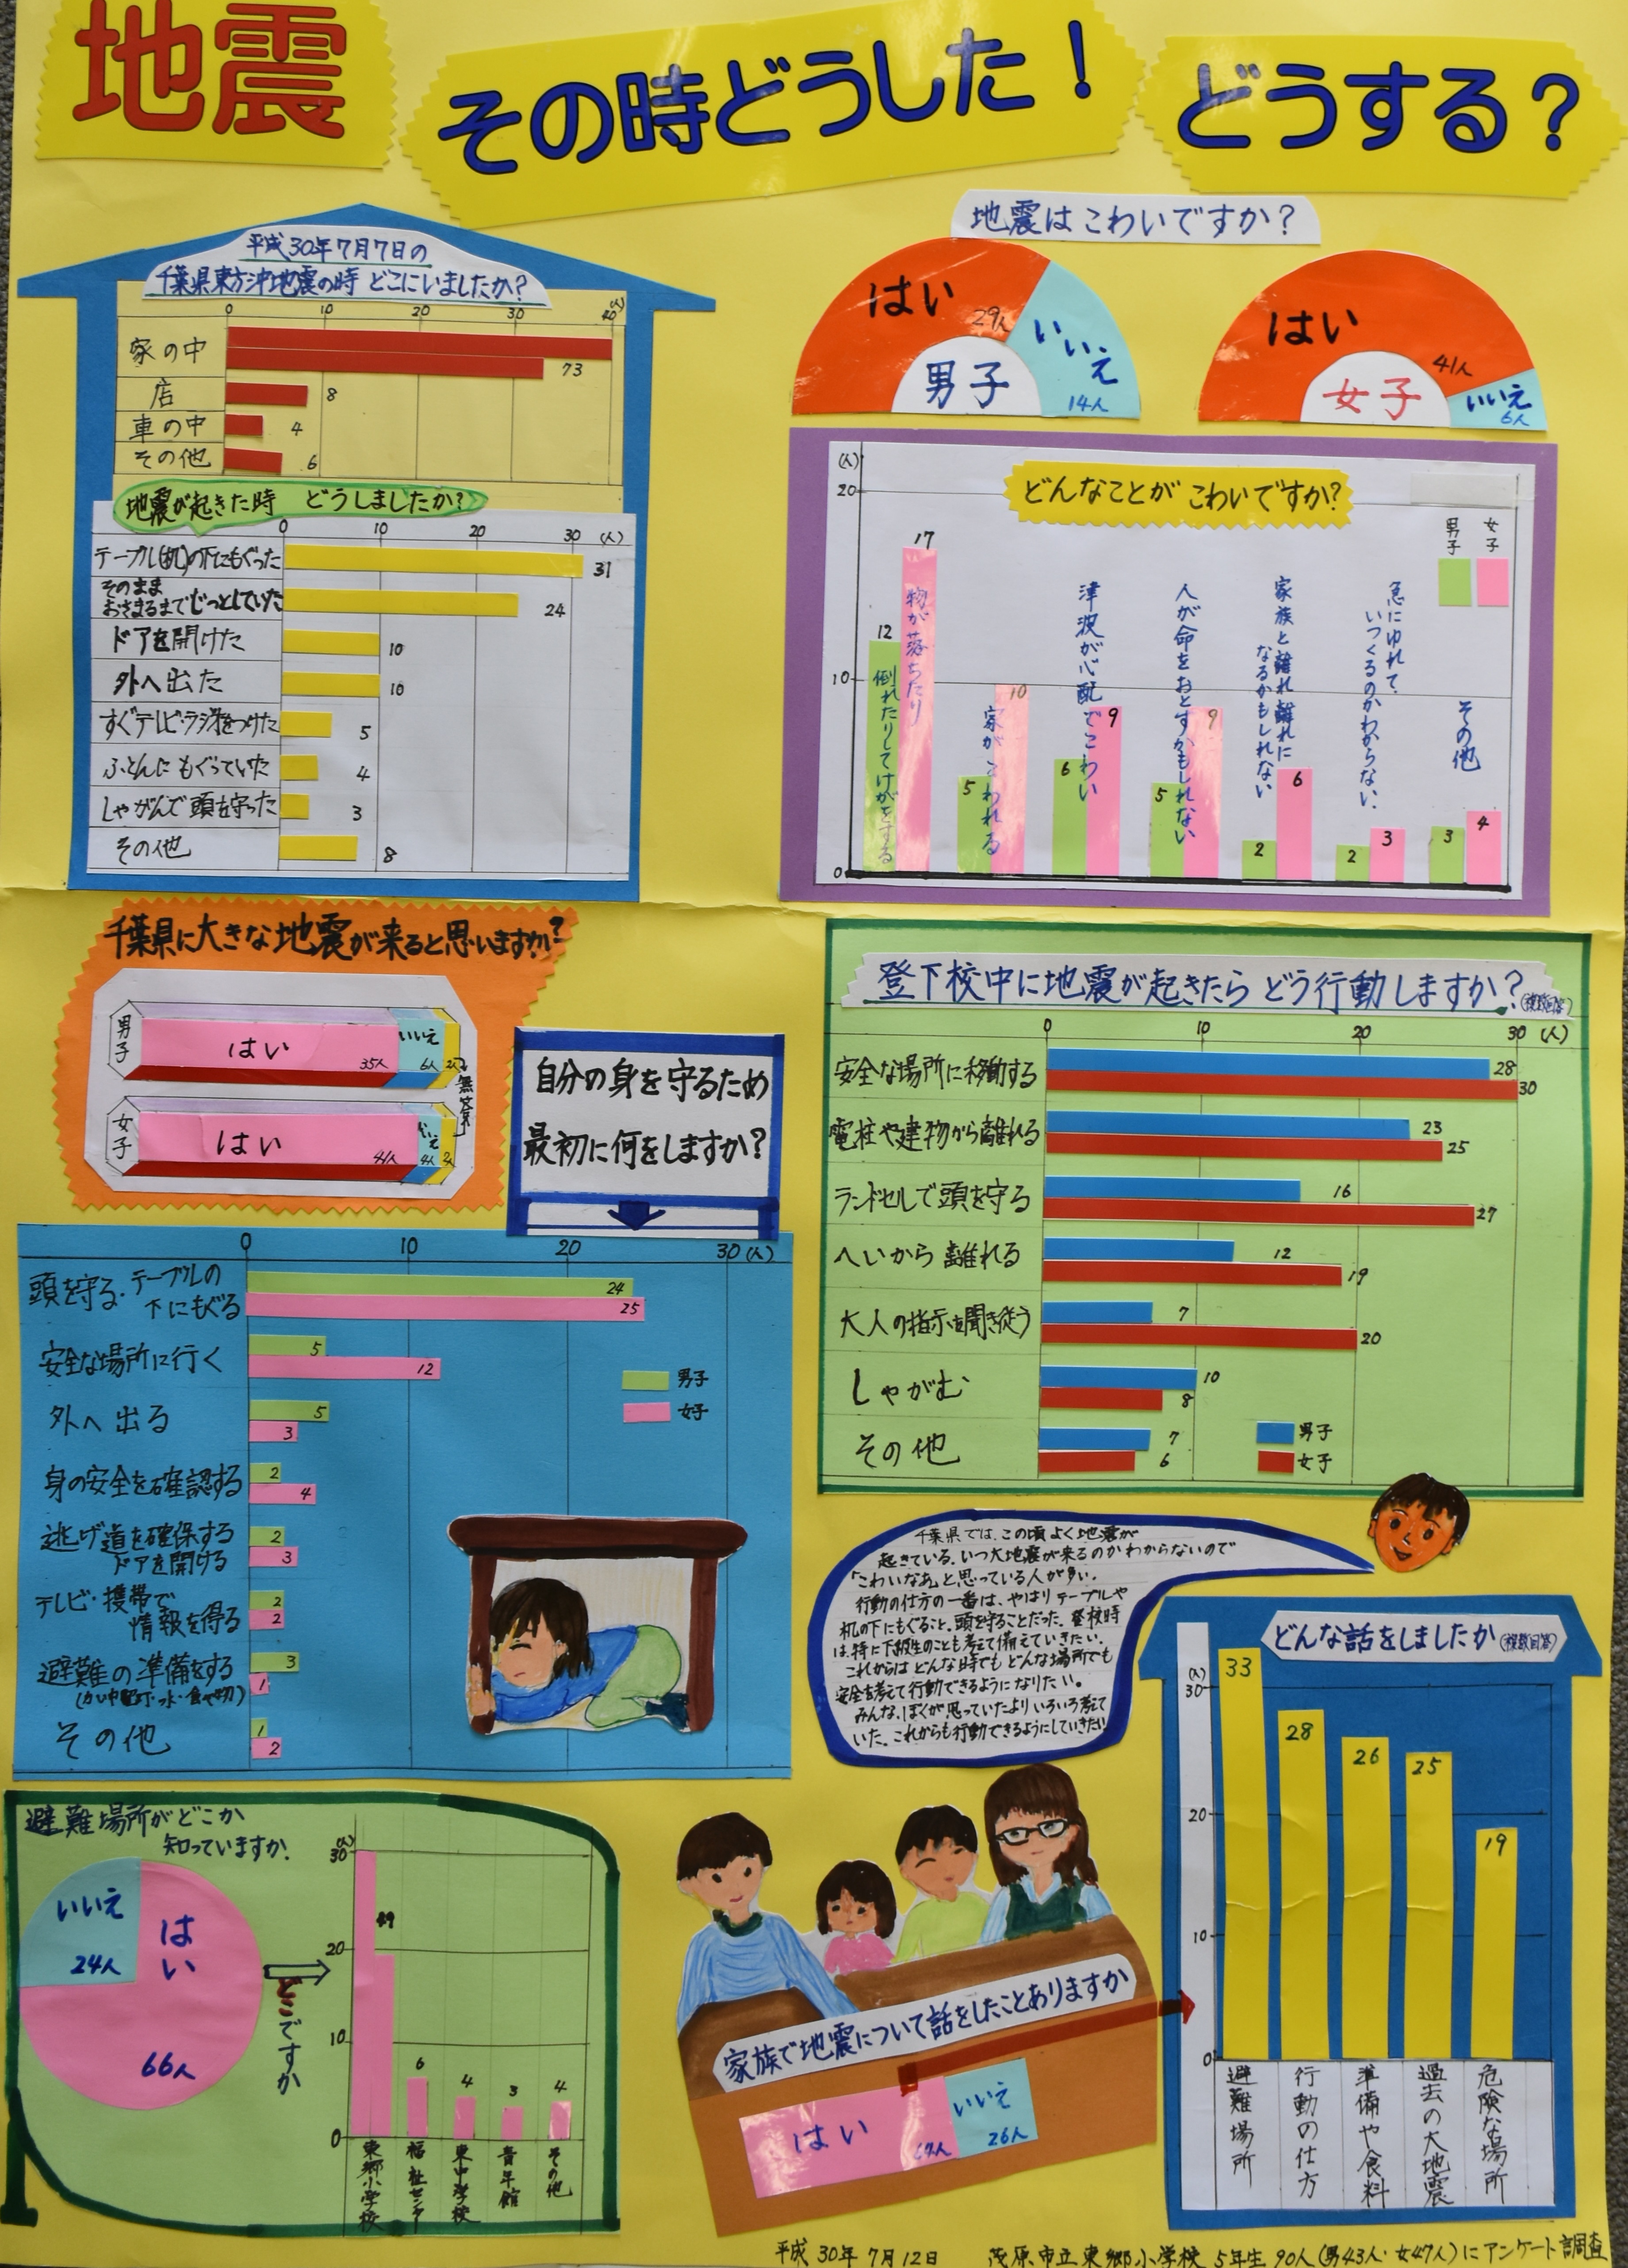 地震
その時どうした！
どうする？
平成30年7月7日の
千葉県東方沖地震の時 どこにいましたか?
0 10 20 30 40(人)
家の中 73
店 8
車の中 4
その他 6
地震が起きた時 どうしましたか?
0 10 20 30 (人)
テーブル(机)の下にもぐった 31
そのまま
おさまるまでじっとしていた 24
ドアを開けた 10
外へ出た 10
すぐテレビ・ラジオをつけた 5
ふとんにもぐっていた 4
しゃがんで頭を守った 3
その他 8
地震はこわいですか?
はい 29人
いいえ 14人
男子
はい 41人
いいえ 6人
女子
どんなことがこわいですか?
(人)
20
10
0
男子
女子
12 17
物が落ちたり
倒れたりしてけがをする
5 10
家がこわれる
6 9
津波が心配でこわい
5 9
人が命をおとすかもしれない
2 6
家族と離れ離れに
なるかもしれない
2 3
急にゆれて、
いつくるのかわからない。
3 4
その他
千葉県に大きな地震が来ると思いますか?
男子 はい 35人 いいえ 6人 2人
無答
女子 はい 41人 いいえ 4人 2人
自分の身を守るため
最初に何をしますか?
0 10 20 30(人)
頭を守る・テーブルの
下にもぐる 24 25
安全な場所に行く 5 12
外へ出る 5 3
身の安全を確認する 2 4
逃げ道を確保する
ドアを開ける 2 3
テレビ・携帯で
情報を得る 2 2
避難の準備をする
(かい中電灯・水・食べ物) 3 1
その他 1 2
男子
女子
登下校中に地震が起きたら どう行動しますか?(複数回答)
0 10 20 30 (人)
安全な場所に移動する 28 30
電柱や建物から離れる 23 25
ランドセルで頭を守る 16 27
へいから離れる 12 19
大人の指示を聞き従う 7 20
しゃがむ 10 8
その他 7 6
男子
女子
千葉県では、この頃よく地震が
起きている。いつ大地震が来るのかわからないので
「こわいなあ」と思っている人が多い。
行動の仕方の一番は、やはりテーブルや
机の下にもぐること、頭を守ることだった。登校時
は、特に下級生のことも考えて備えていきたい。
これからは どんな時でも どんな場所でも
安全を考えて行動できるようになりたい。
みんな、ぼくが思っていたより いろいろ考えて
いた。これからも行動できるようにしていきたい!
避難場所がどこか
知っていますか?
いいえ
24人
はい
66人
どこですか
(人)
30
20
10
0
49 6 4 3 4
東郷小学校
福祉センター
東中学校
青年館
その他
家族で地震について話をしたことありますか
はい
いいえ 26人
どんな話をしましたか(複数回答)
(人)
30
20
10
0
33 28 26 25 19
避難場所
行動の仕方
準備や食料
過去の大地震
危険な場所
平成30年7月12日 茂原市立東郷小学校 5年生 90人(男43人・女47人)にアンケート調査